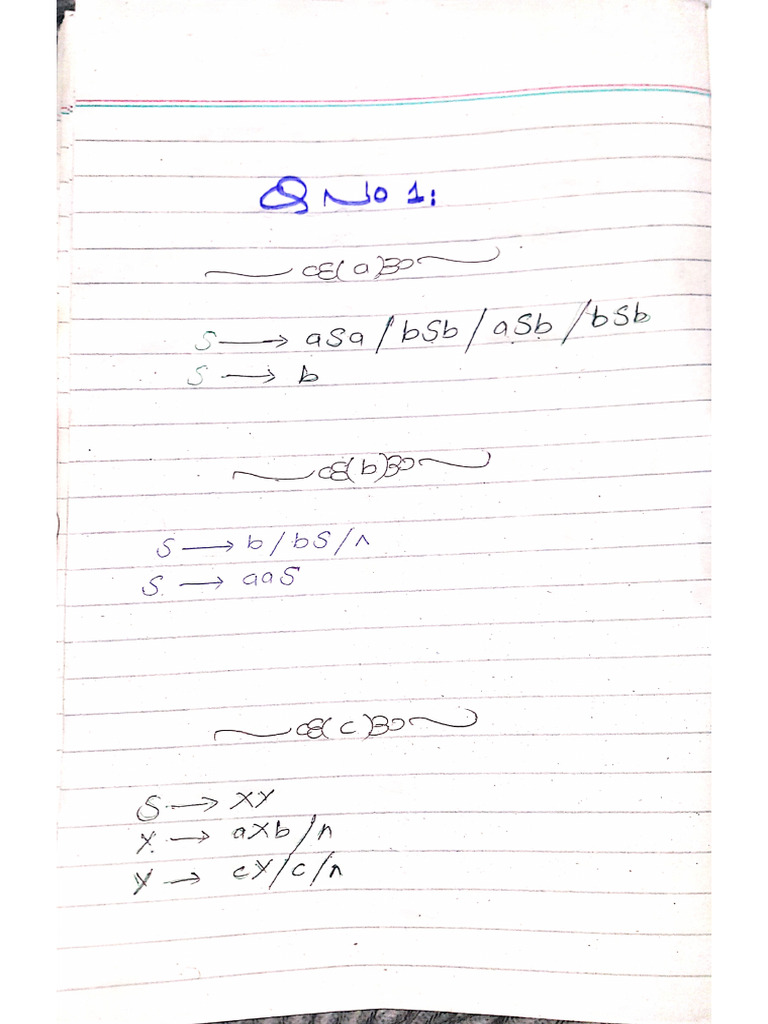 Q No 1:
(a)
S → aSa / bSb / aSb / bSb
S → b
(b)
S → b / bS / ʌ
S → aaS
(c)
S → XY
X → aXb / ʌ
Y → cY / c / ʌ